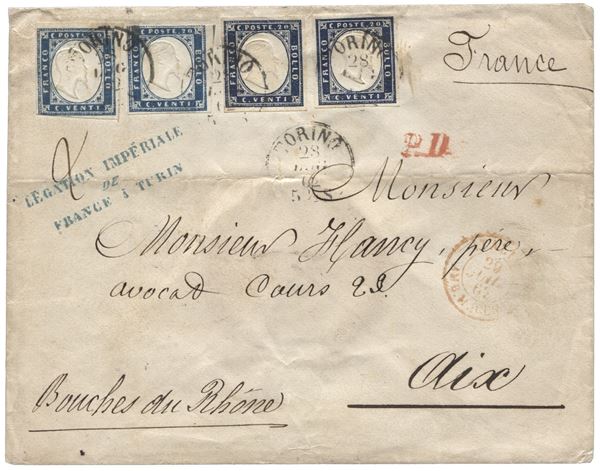 C. POSTE. 20
FRANCO
BOLLO
C. VENTI
C. POSTE. 20
FRANCO
BOLLO
C. VENTI
C. POSTE. 20
FRANCO
BOLLO
C. VENTI
C. POSTE. 20
FRANCO
BOLLO
C. VENTI
TORINO
TORINO
28
France
2
LÉGATION IMPÉRIALE
DE
FRANCE à TURIN
P.D.
TORINO
28
62
5
Monsieur
Monsieur Hancy, père,
avocat Cours 22.
Aix
Bouches du Rhône